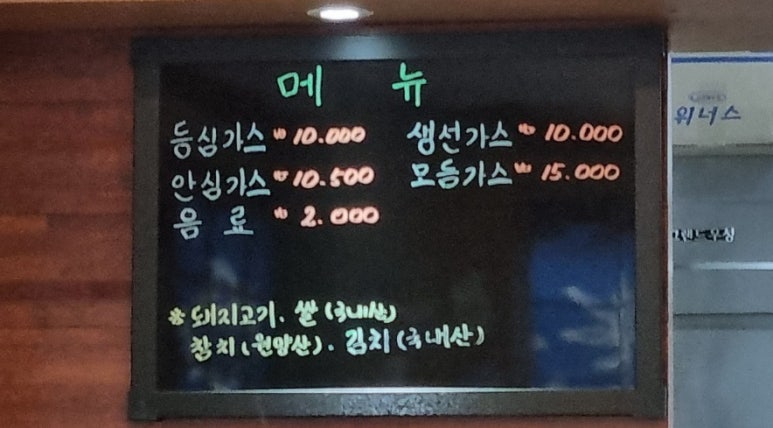 메 뉴
등심가스 ₩ 10.000 생선가스 ₩ 10.000
안심가스 ₩ 10.500 모듬가스 ₩ 15.000
음 료 ₩ 2.000
※ 돼지고기. 쌀 (국내산)
참치 (원양산). 김치 (국내산)
위너스